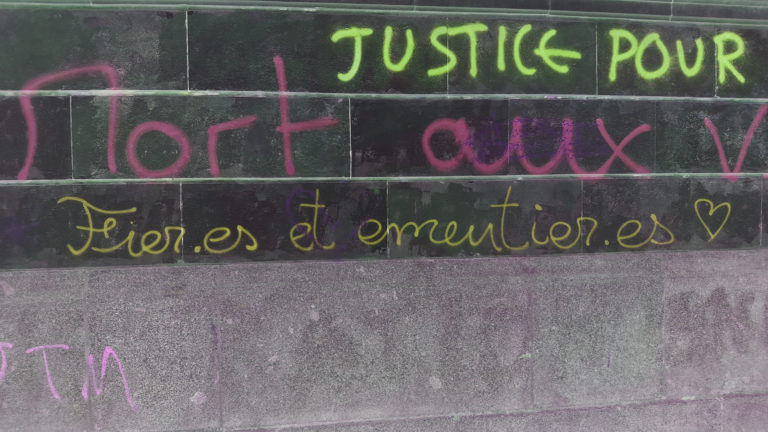 JUSTICE POUR
Mort aux V
Fier.es et emeutier.es ♡
JTM